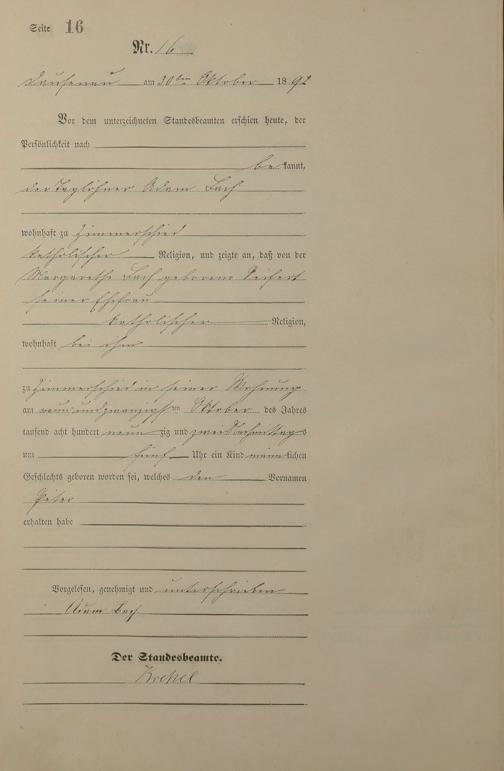 Seite 16
Nr. 16
Dausenau am 30ten Oktober 1892
Vor dem unterzeichneten Standesbeamten erschien heute, der
Persönlichkeit nach
bekannt,
der Taglöhner Adam Bach
wohnhaft zu Zimmerschied
katholischer Religion, und zeigte an, daß von der
Margarethe Bach geborene Seifert
seiner Ehefrau
katholischer Religion,
wohnhaft bei ihm
zu Zimmerschied in seiner Wohnung
am neunundzwanzigsten Oktober des Jahres
tausend acht hundert neunzig und zwei Nachmittags
um fünf Uhr ein Kind männlichen
Geschlechts geboren worden sei, welches den Vornamen
Peter
erhalten habe
Vorgelesen, genehmigt und unterschrieben
Adam Bach
Der Standesbeamte.
Krekel